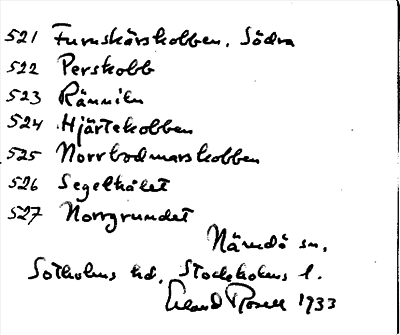 521 Furuskärskobben, Södra
522 Perskobb
523 Rännilen
524 Hjärtekobben
525 Norrbodmarskobben
526 Segelhålet
527 Norrgrundet
Nämdö sn.
Sotholms hd, Stockholms l.
Erland Rosell 1933